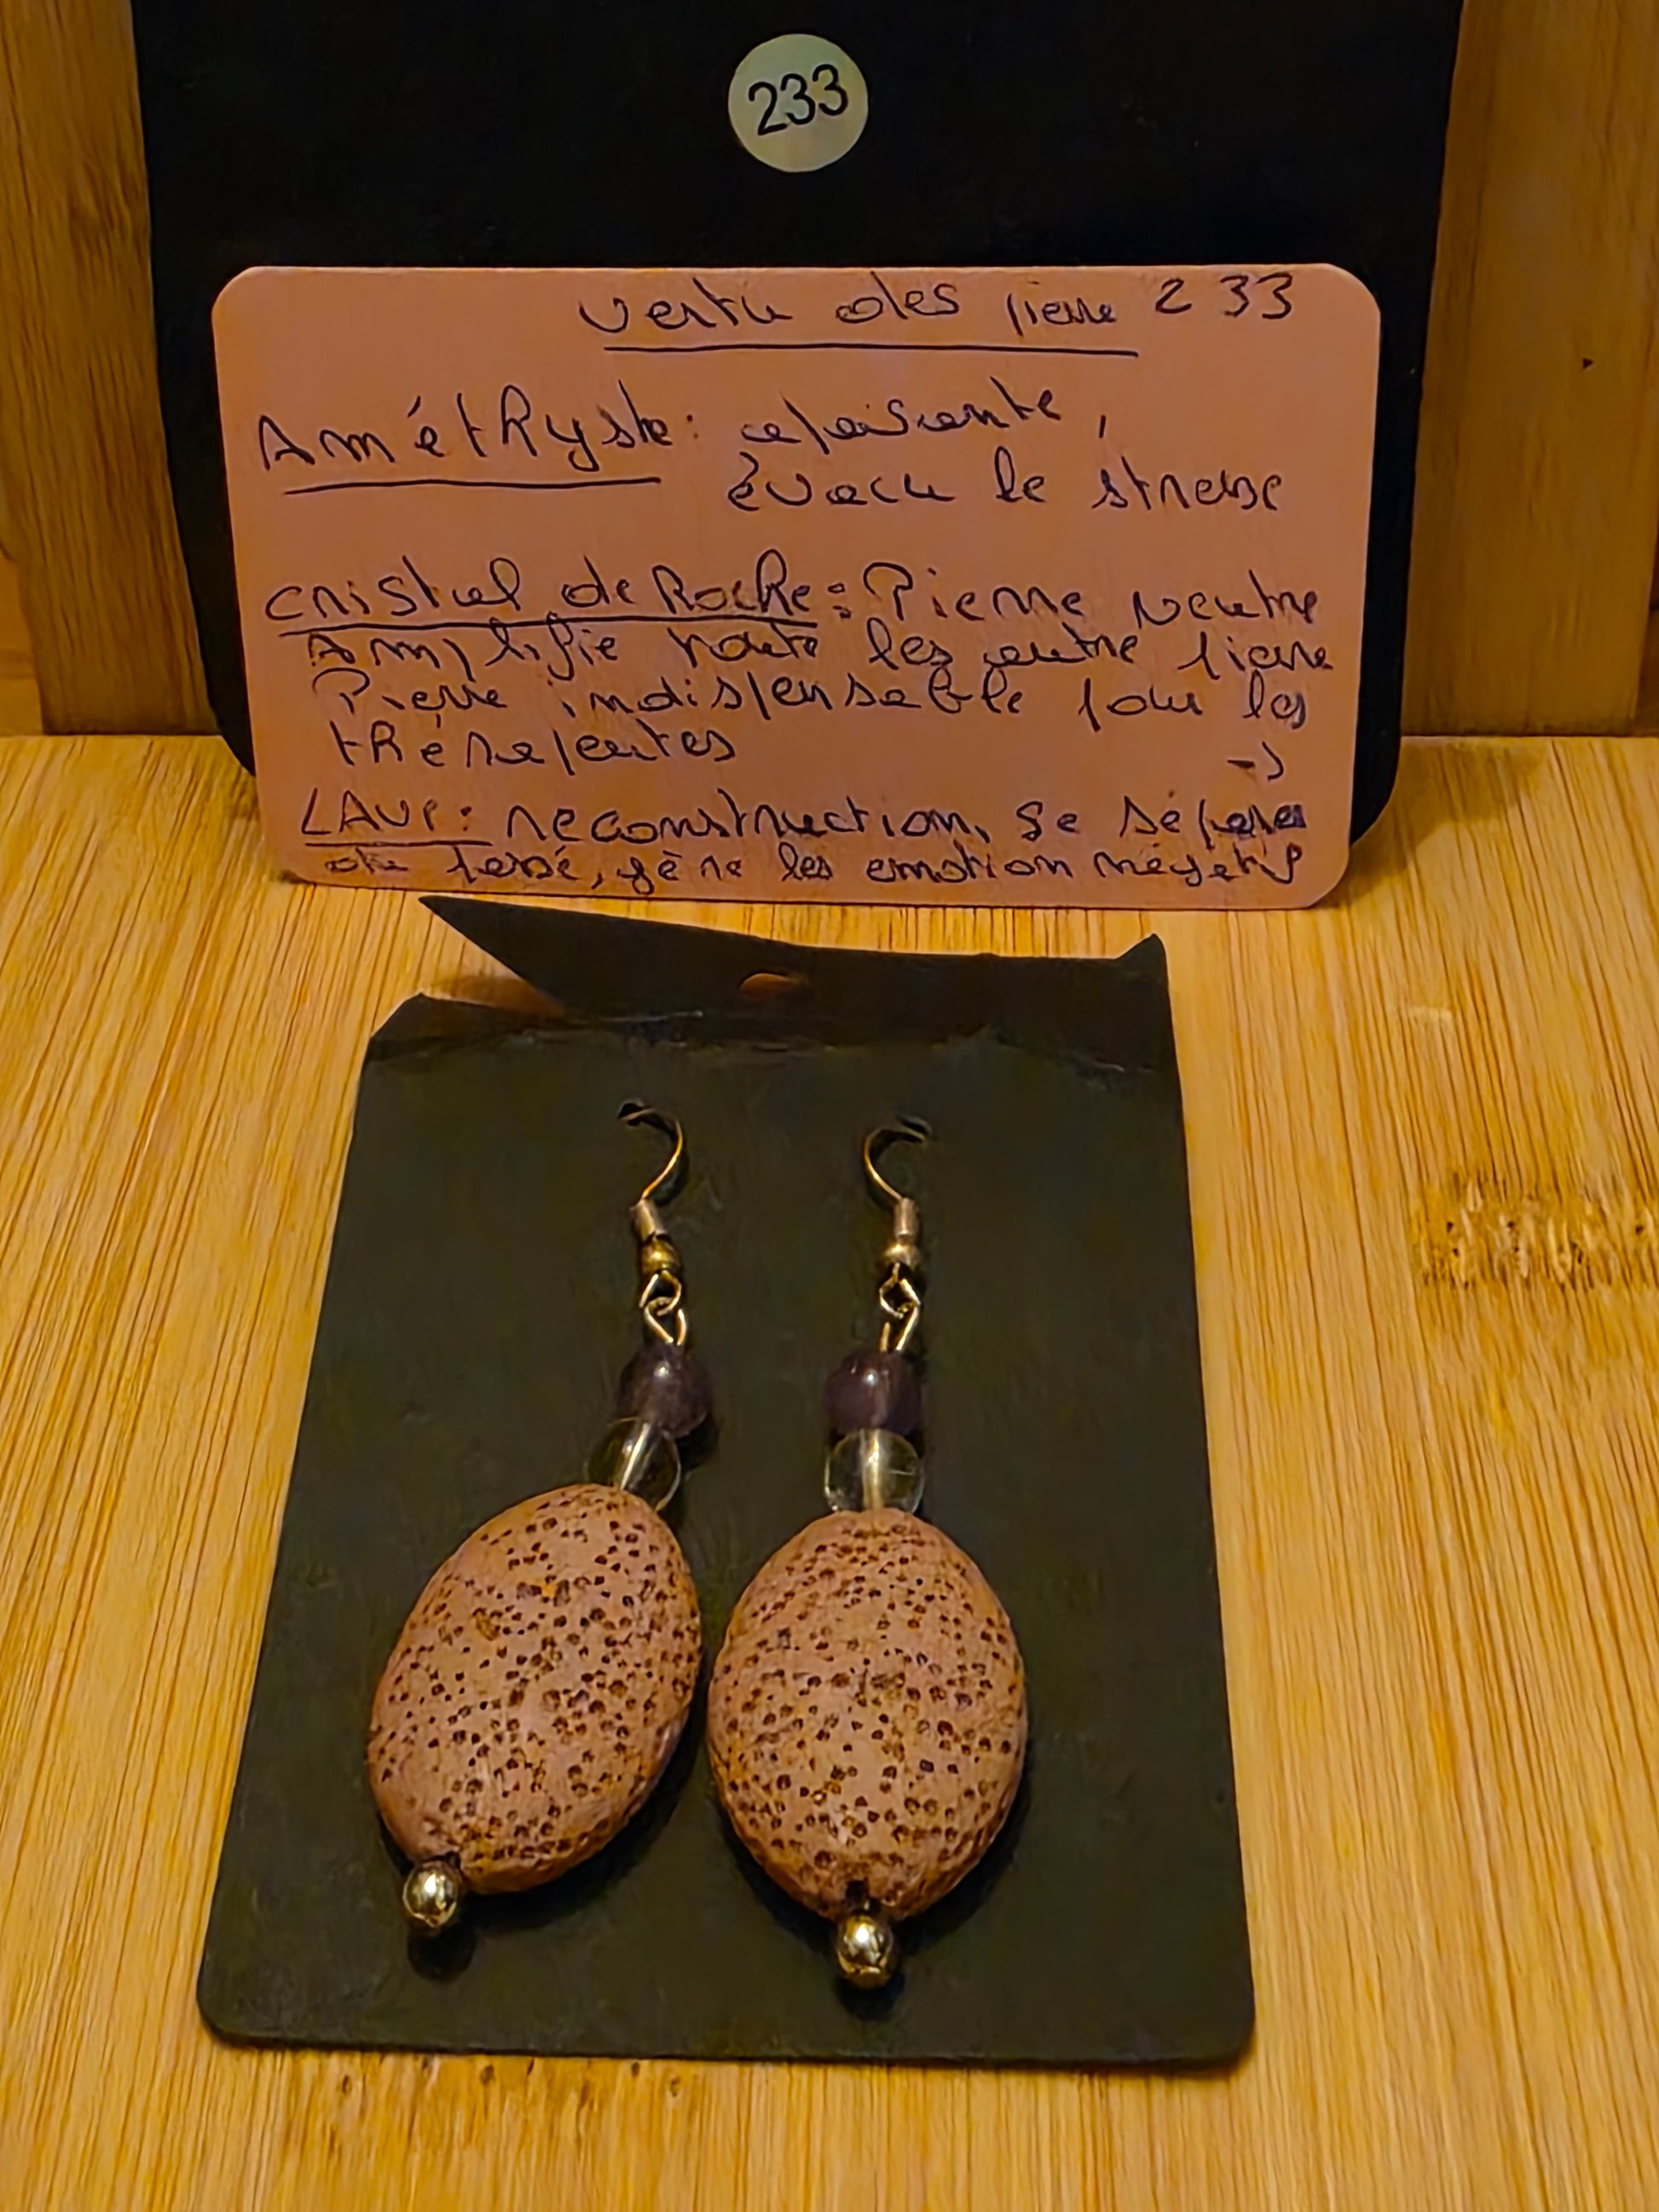 233
Vertu des pierre 233
Améthyste: apaisante,
évacu le stresse
cristal de Roche: Pierre Neutre
Amplifie toute les autre pierre
Pierre indispensable pour les
thérapeutes
->
LAVE: reconstruction, se séparer
du passé, gère les emotion négatif